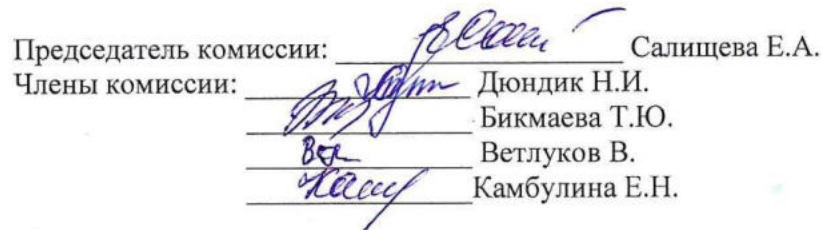 Председатель комиссии: Салищева Е.А.
Члены комиссии: Дюндик Н.И.
Бикмаева Т.Ю.
Ветлуков В.
Камбулина Е.Н.